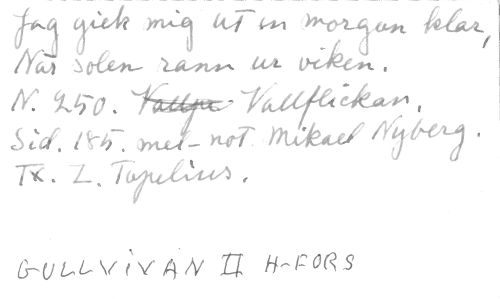 Jag gick mig ut en morgon klar,
När solen rann ur viken.
N. 250. Vallflickan.
Sid. 185. mel-not. Mikael Nyberg.
Tx. Z. Topelius.
GULLVIVAN II H-FORS